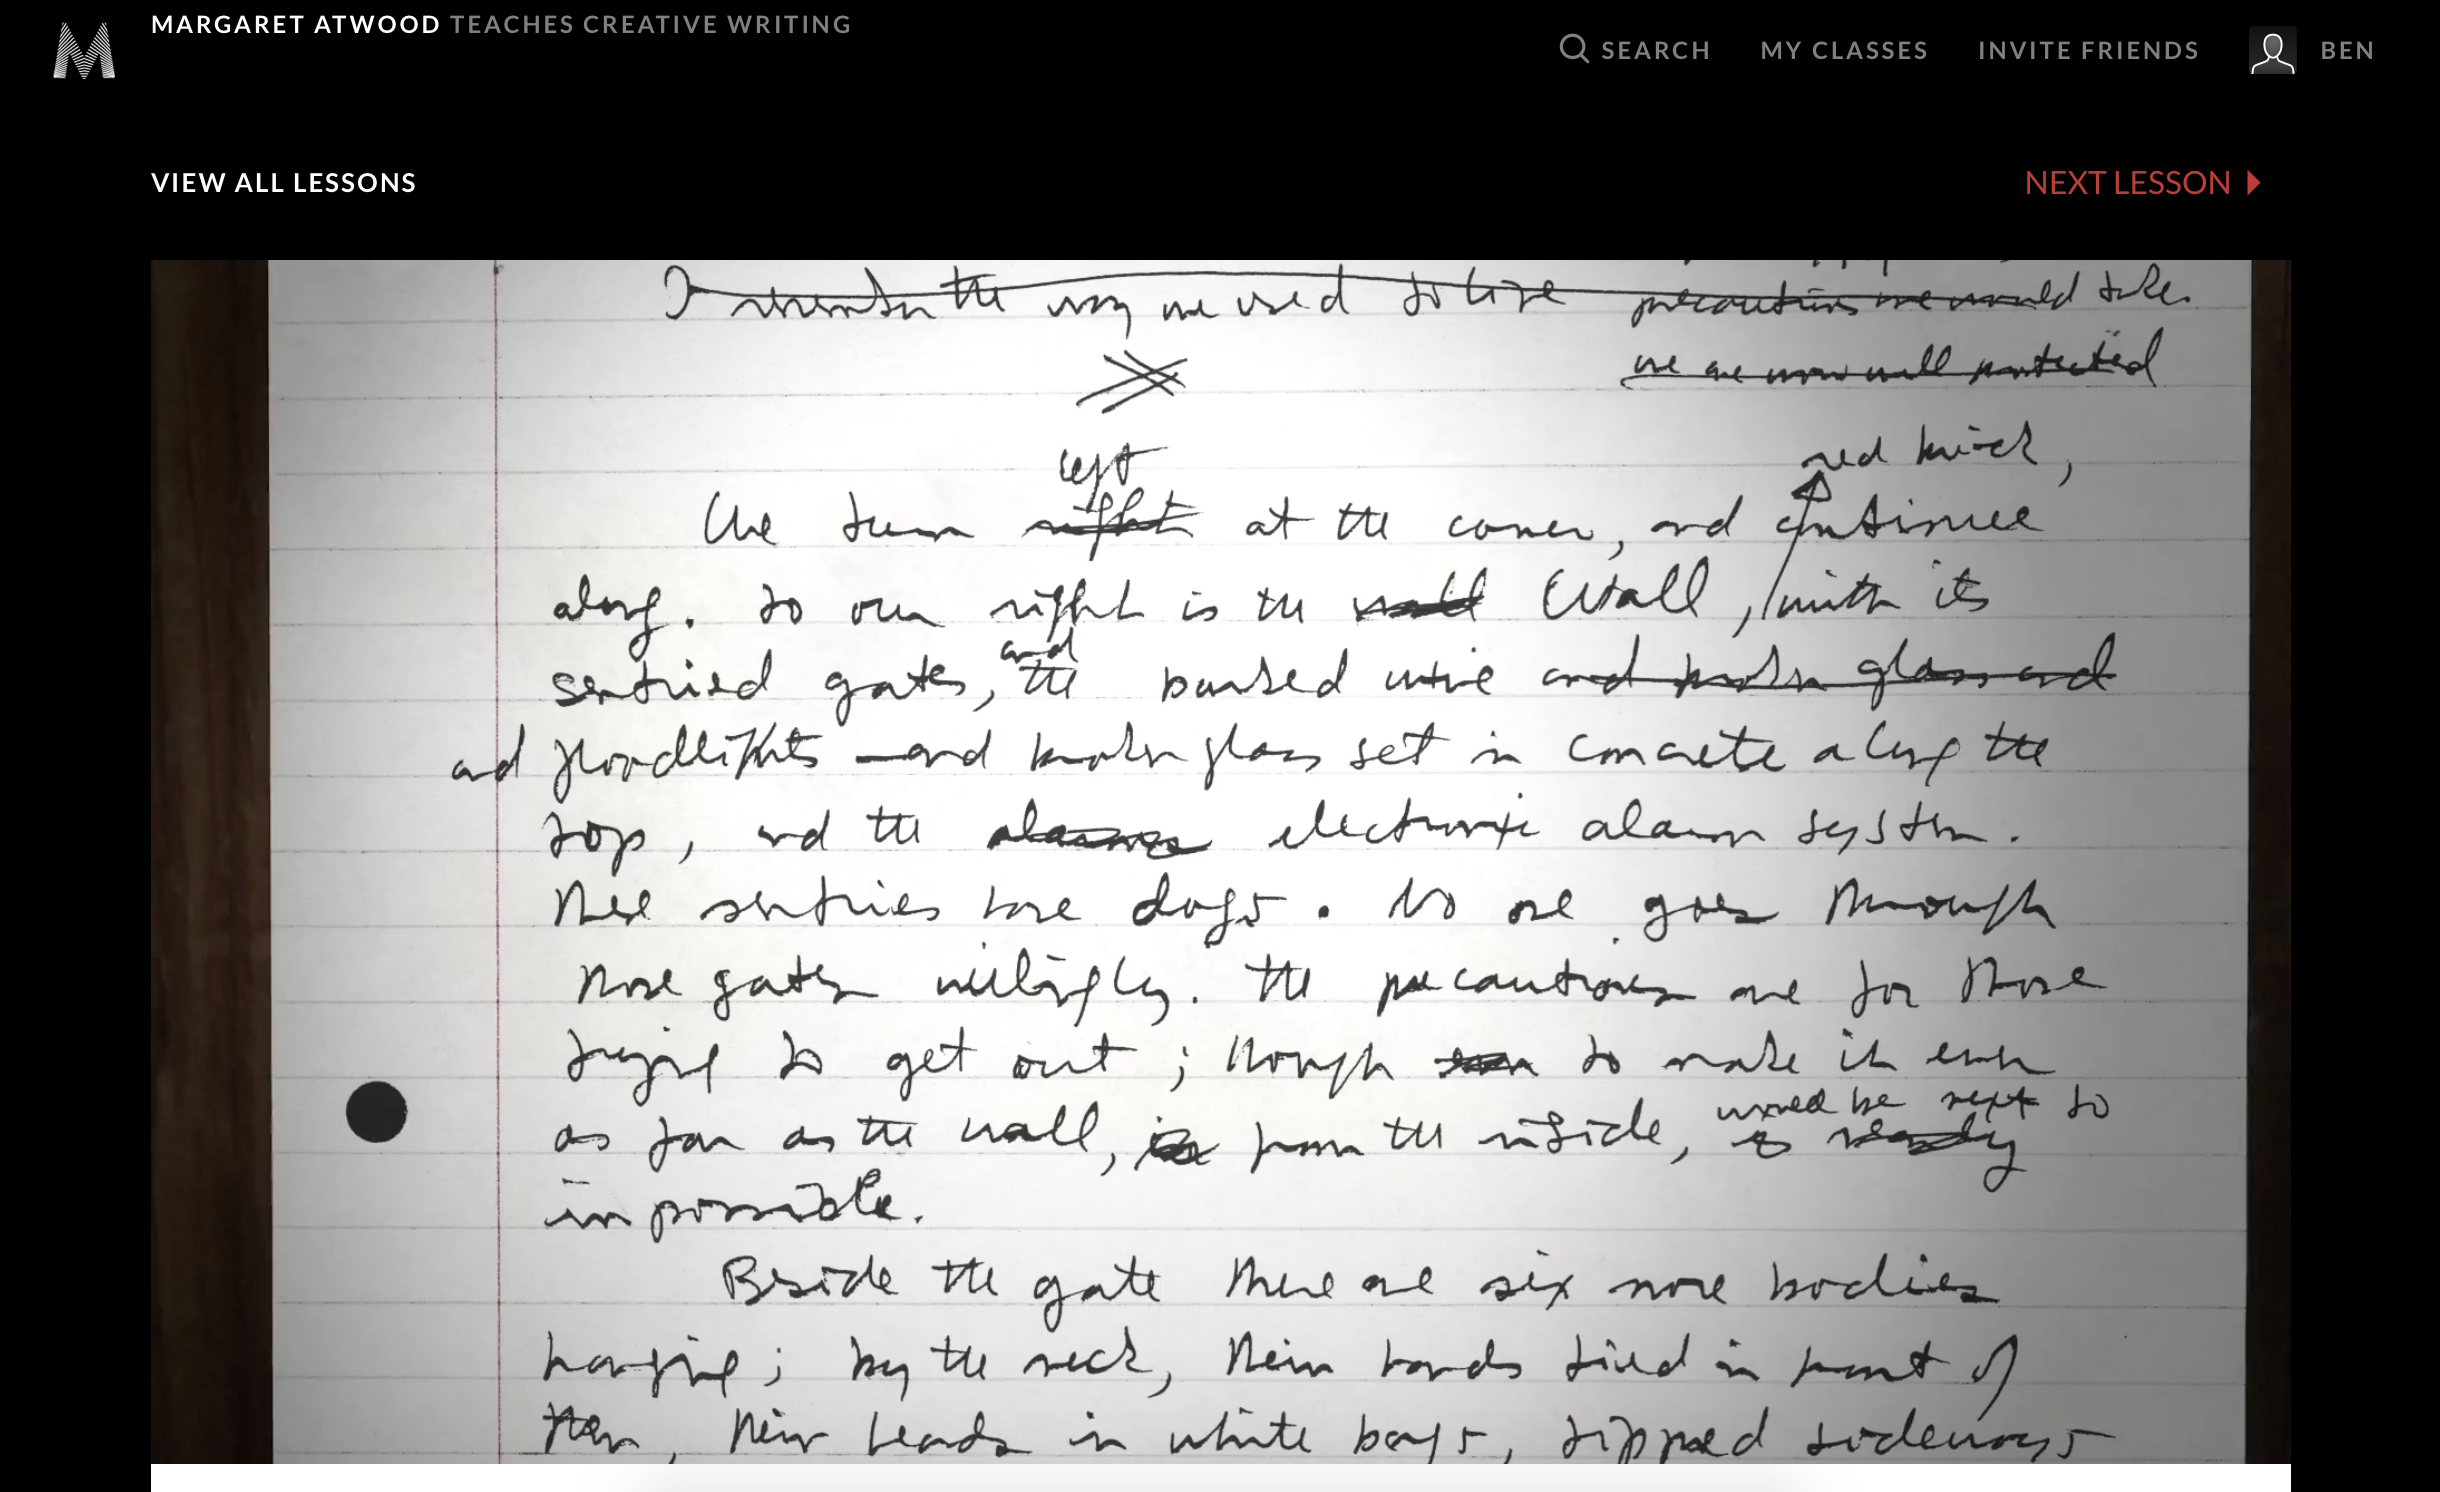 MARGARET ATWOOD TEACHES CREATIVE WRITING
SEARCH MY CLASSES INVITE FRIENDS BEN
VIEW ALL LESSONS
NEXT LESSON
I remember the way we used to live precautions we would take.
we are now well protected
left red brick,
We turn right at the corner, and continue
along. To our right is the wall Wall, with its
and
sentried gates, the barbed wire and broken glass and
and floodlights and broken glass set in concrete along the
top, and the alarms electronic alarm system.
These sentries have dogs. No one goes through
those gates willingly. The precautions are for those
trying to get out; though even to make it even
would be next to
as far as the wall, is from the inside, is nearly
impossible.
Beside the gate there are six more bodies
hanging; by the neck, their hands tied in front of
them, their heads in white bags, tipped sideways